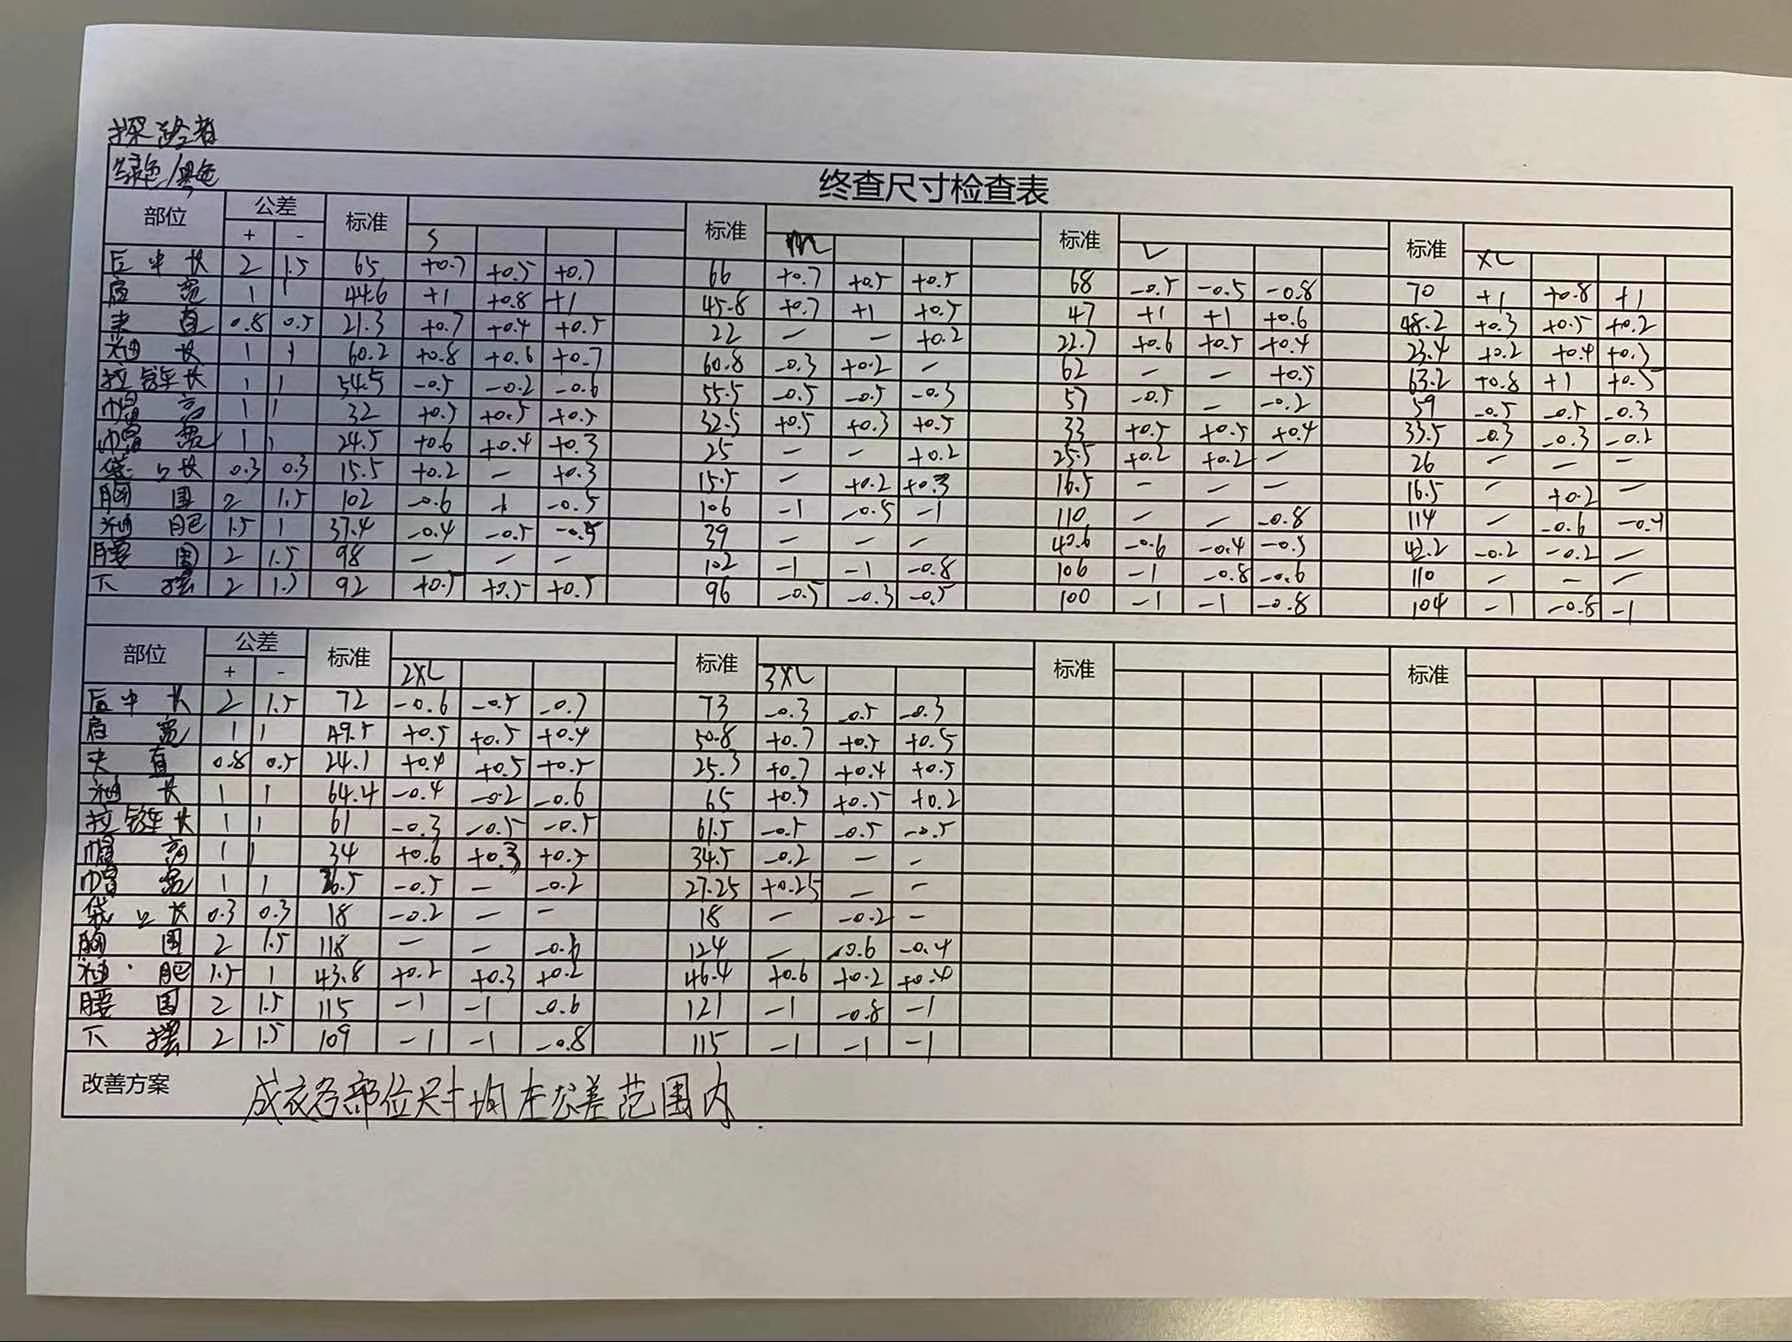 探路者
绿色/黑色
终查尺寸检查表
部位 公差 标准 标准 标准 标准
+ - S M L XL
后中长 2 1.5 65 +0.7 +0.5 +0.7 66 +0.7 +0.5 +0.5 68 -0.5 -0.5 -0.8 70 +1 +0.8 +1
肩宽 1 1 44.6 +1 +0.8 +1 45.8 +0.7 +1 +0.5 47 +1 +1 +0.6 48.2 +0.3 +0.5 +0.2
夹直 0.8 0.5 21.3 +0.7 +0.4 +0.5 22 - - +0.2 22.7 +0.6 +0.5 +0.4 23.4 +0.2 +0.4 +0.3
袖长 1 1 60.2 +0.8 +0.6 +0.7 60.8 -0.3 +0.2 - 62 - - +0.5 63.2 +0.8 +1 +0.5
拉链长 1 1 54.5 -0.5 -0.2 -0.6 55.5 -0.5 -0.5 -0.3 57 -0.5 - -0.2 59 -0.5 -0.5 -0.3
帽高 1 1 32 +0.5 +0.5 +0.5 32.5 +0.5 +0.3 +0.5 33 +0.5 +0.5 +0.4 33.5 -0.3 -0.3 -0.2
帽宽 1 1 24.5 +0.6 +0.4 +0.3 25 - - +0.2 25.5 +0.2 +0.2 - 26 - - -
袋口长 0.3 0.3 15.5 +0.2 - +0.3 15.5 - +0.2 +0.3 16.5 - - - 16.5 - +0.2 -
胸围 2 1.5 102 -0.6 -0.5 106 -1 -0.5 -1 110 - - -0.8 114 - -0.6
袖肥 1.5 1 37.4 -0.4 -0.5 -0.5 39 - - - 40.6 -0.6 -0.4 -0.5 42.2 -0.2 -0.2 -
腰围 2 1.5 98 - - - 102 -1 -1 -0.8 106 -1 -0.8 -0.6 110 - - -
下摆 2 1.5 92 +0.5 +0.5 +0.5 96 -0.5 -0.3 -0.5 100 -1 -1 -0.8 104 -1 -0.8 -1
部位 公差 标准 标准 标准 标准
+ - 2XL 3XL
后中长 2 1.5 72 -0.6 -0.5 -0.7 73 -0.3 -0.5 -0.3
肩宽 1 1 49.5 +0.5 +0.5 +0.4 50.8 +0.7 +0.5 +0.5
夹直 0.8 0.5 24.1 +0.4 +0.5 +0.5 25.3 +0.7 +0.4 +0.5
袖长 1 1 64.4 -0.4 -0.2 -0.6 65 +0.3 +0.5 +0.2
拉链长 1 1 61 -0.3 -0.5 -0.5 61.5 -0.5 -0.5 -0.5
帽高 1 1 34 +0.6 +0.3 +0.5 34.5 -0.2 - -
帽宽 1 1 26.5 -0.5 - -0.2 27.25 +0.25 - -
袋口长 0.3 0.3 18 -0.2 - - 18 - -0.2 -
胸围 2 1.5 118 - - -0.6 124 - -0.6 -0.4
袖肥 1.5 1 43.8 +0.2 +0.3 +0.2 46.4 +0.6 +0.2 +0.4
腰围 2 1.5 115 -1 -1 -0.6 121 -1 -0.8 -1
下摆 2 1.5 109 -1 -1 -0.8 115 -1 -1 -1
改善方案 成衣各部位尺寸均在公差范围内